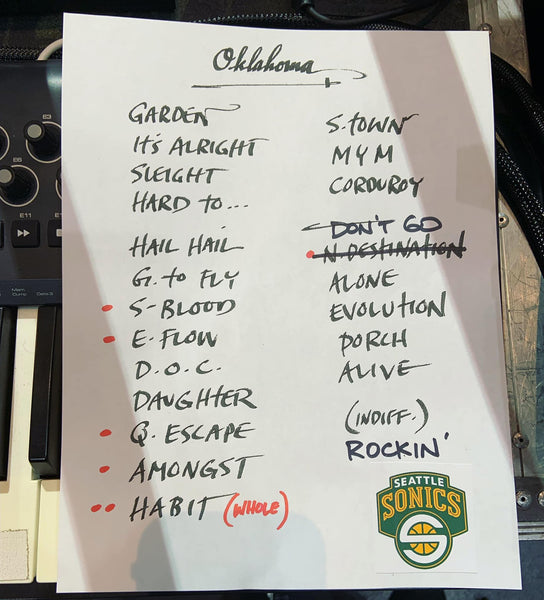 Oklahoma
GARDEN
IT'S ALRIGHT
SLEIGHT
HARD TO...
HAIL HAIL
G. TO FLY
S-BLOOD
E-FLOW
D.O.C.
DAUGHTER
Q. ESCAPE
AMONGST
HABIT (WHOLE)
S.TOWN
MYM
CORDUROY
DON'T GO
N. DESTINATION
ALONE
EVOLUTION
PORCH
ALIVE
(INDIFF.)
ROCKIN'
SEATTLE
SONICS
E11